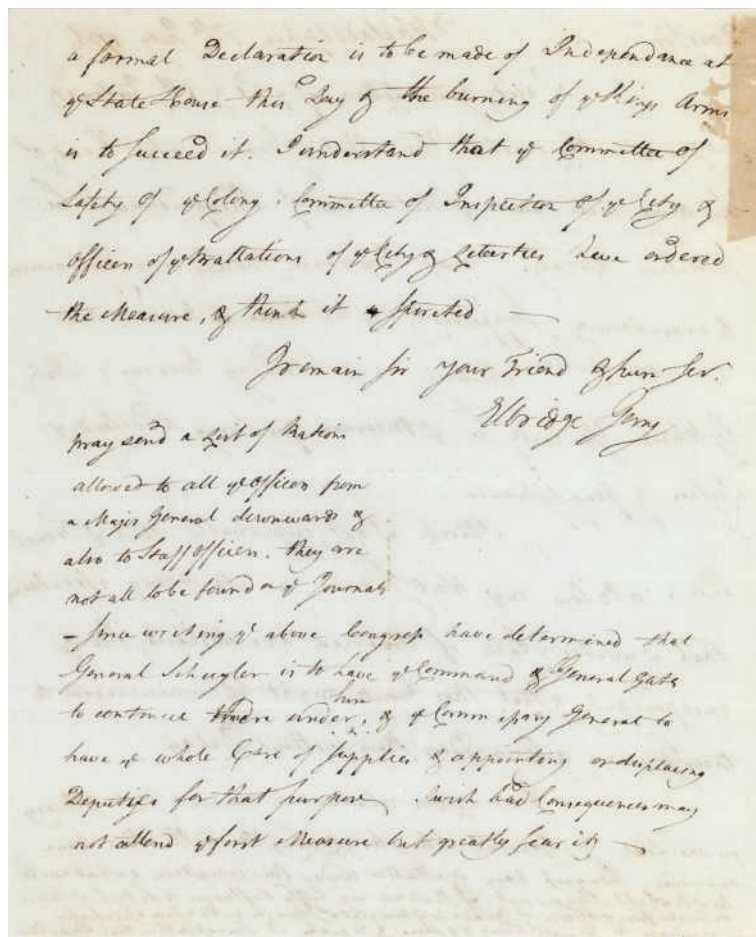 a formal Declaration is to be made of Independance at
ye State House this Day & the burning of ye Kings Arms
is to succeed it. I understand that ye Committee of
Safety of ye Colony. Committee of Inspection of ye City &
officers of ye Battalions of ye City & Liberties have ordered
the Measure, & think it spirited —
I remain sir your Friend & hum Ser.
Elbridge Gerry
pray send a List of Rations
allowed to all ye officers from
a Major General downwards &
also to Staff officers. they are
not all to be found on ye Journals
– since writing ye above Congress have determined that
General Schuyler is to have ye Command & General Gates
to continue there under him, & ye Commissary General to
have ye whole Care of supplies & appointing or displacing
Deputies for that purpose I wish bad Consequences may
not attend ye first Measure but greatly fear it —